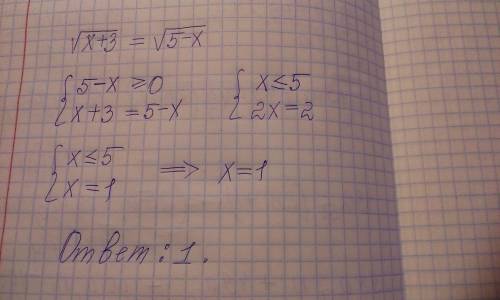 √x+3 = √5-x
{ 5-x ≥0 { x≤5
{ x+3 =5-x { 2x=2
{ x≤5
{ x=1 ⟹ x=1
Ответ: 1.